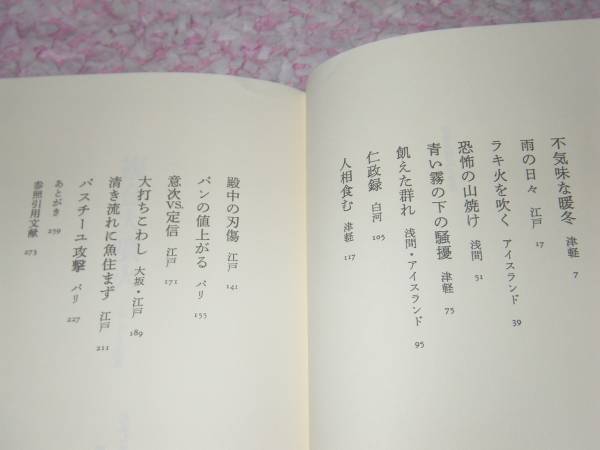 不気味な暖冬 津軽 7
雨の日々 江戸 17
ラキ火を吹く アイスランド 39
恐怖の山焼け 浅間 51
青い霧の下の騒擾 津軽 75
飢えた群れ 浅間・アイスランド 95
仁政録 白河 105
人相食む 津軽 117
殿中の刃傷 江戸 141
パンの値上がる パリ 155
意次VS.定信 江戸 171
大打ちこわし 大坂・江戸 189
清き流れに魚住まず 江戸 211
バスチーユ攻撃 パリ 227
あとがき 259
参照引用文献 273